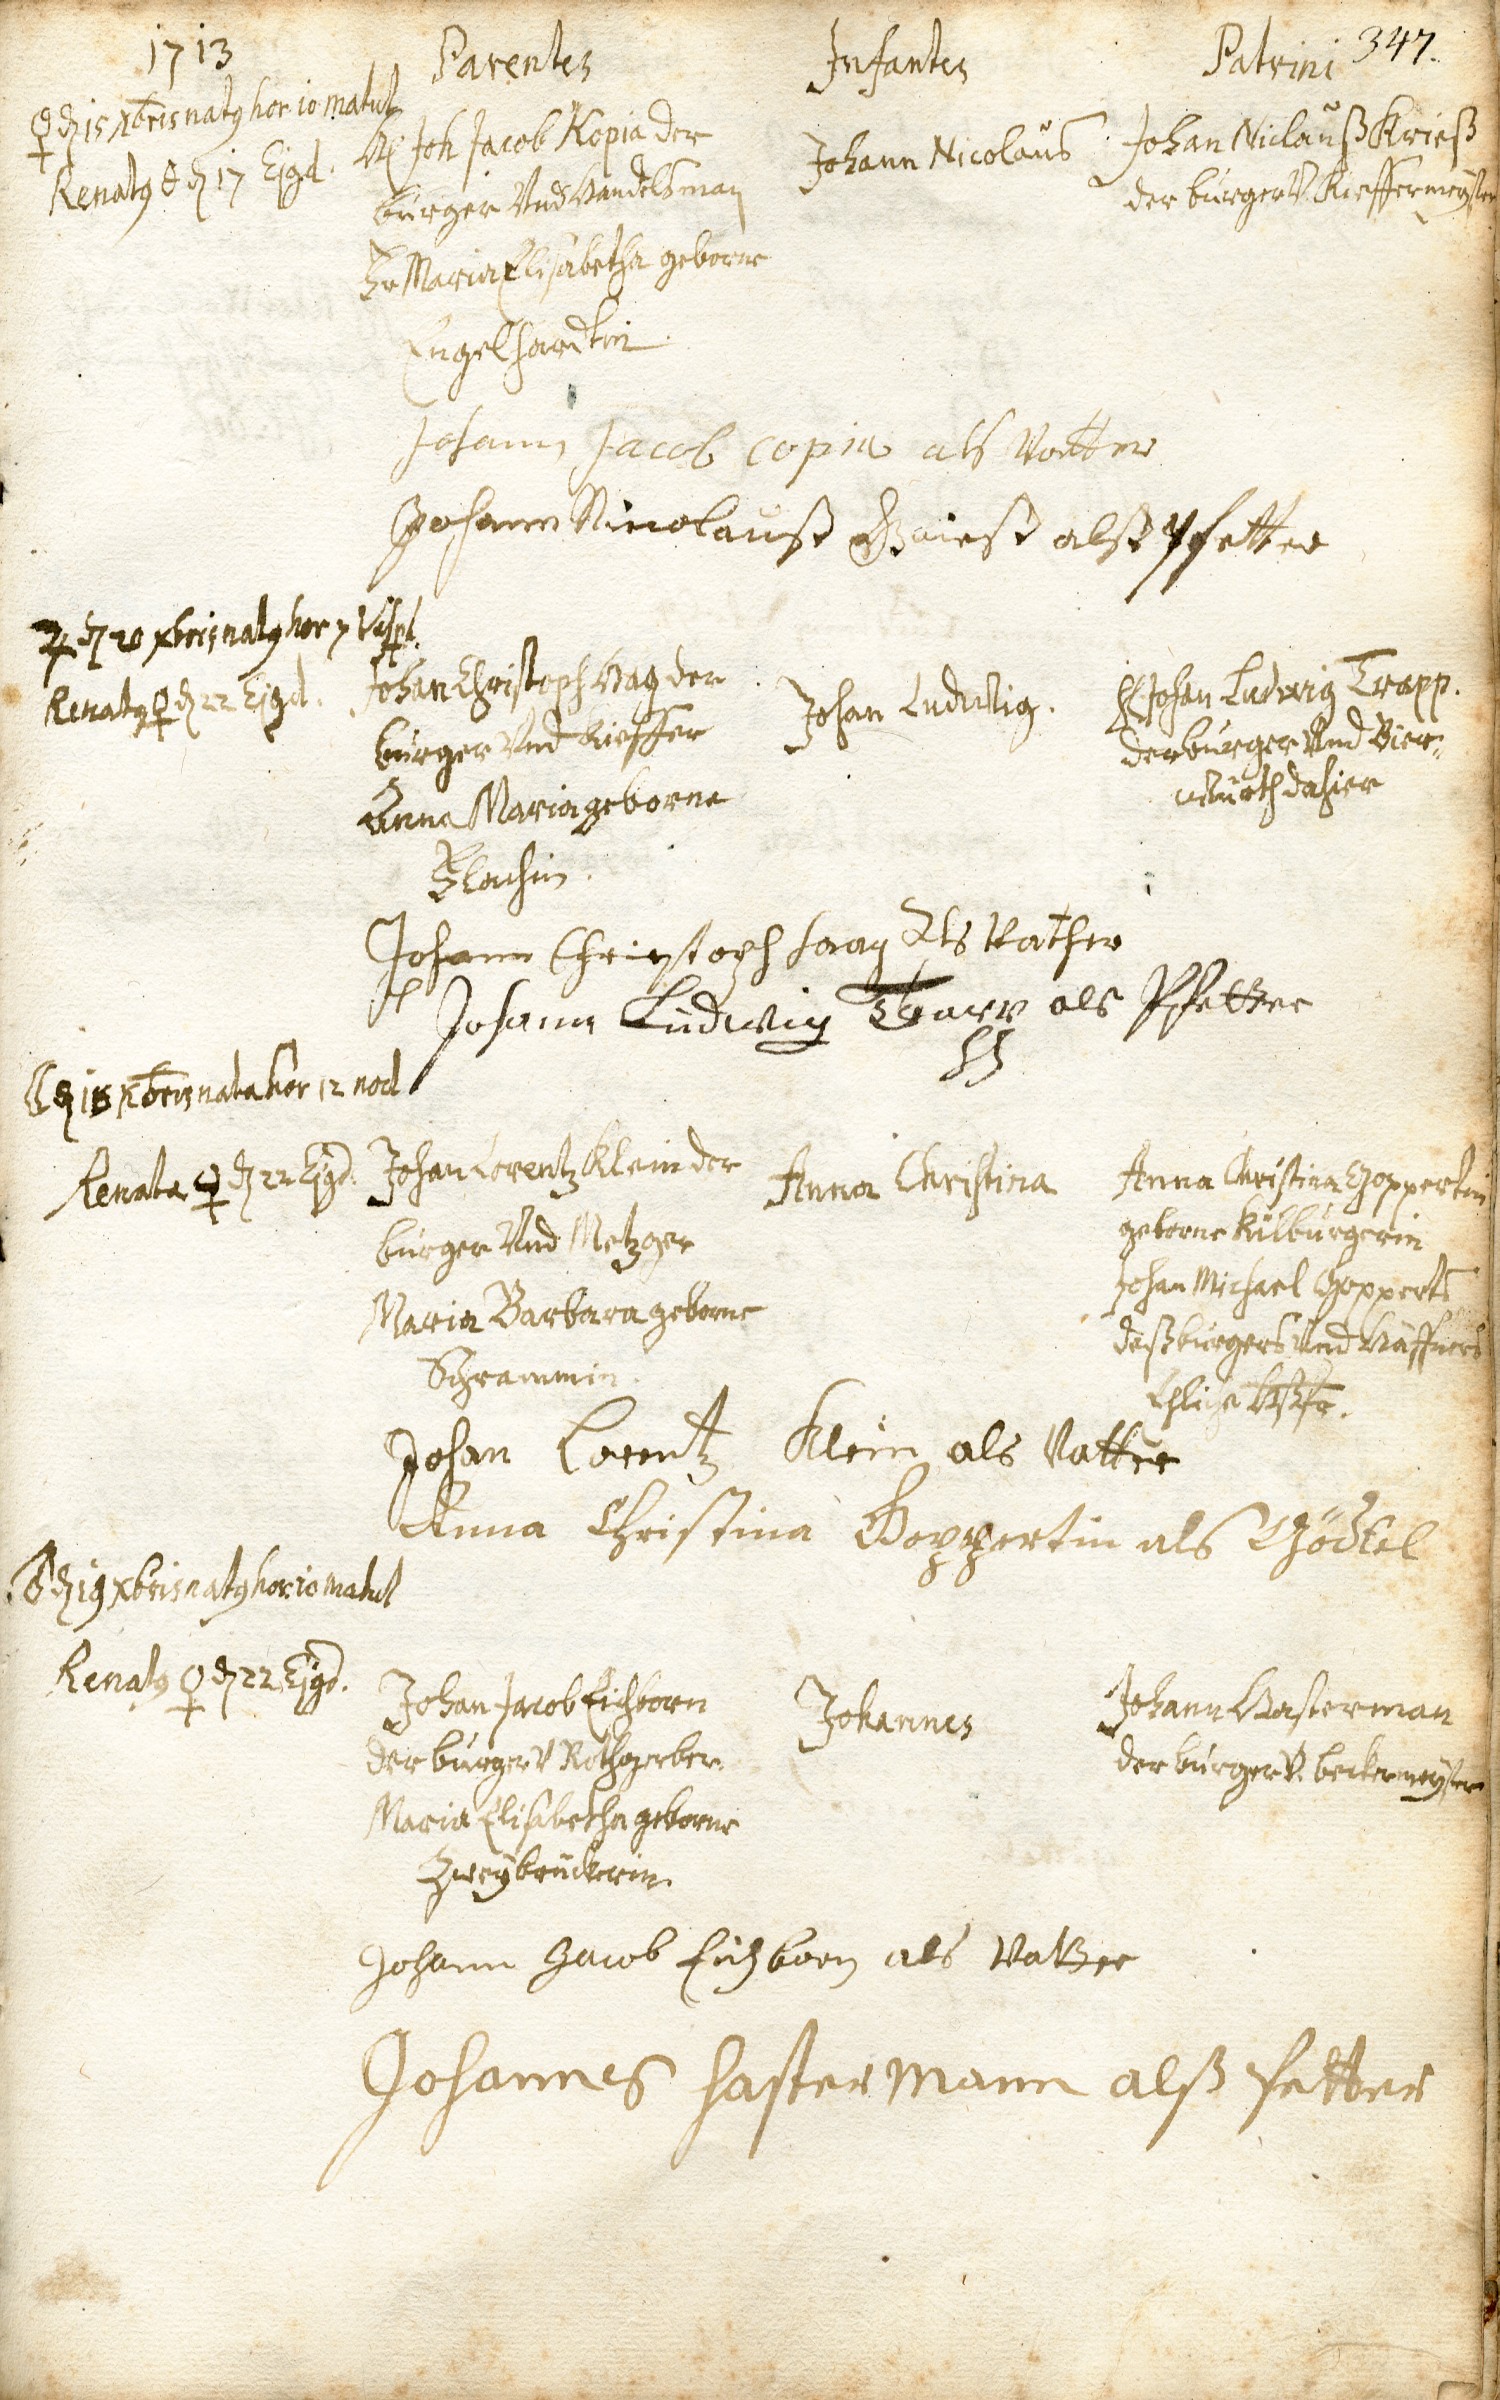 1713 Parentes Infantes Patrini 347.
♀ d 15 xbris natq hor 10 matut
Renatq d 17 Ejqd.
H Joh Jacob Kopia der
burger Vnd Handelsman
Fr Maria Elisabetha geborne
Engelhardtin
Johann Nicolaus
Johan Niclauß Krieß
der burger V. Kieffermeyster
Johann Jacob Copia als Vatter
Johann Nicolauß Grieß alß Pfetter
♃ d 20 xbris natq hor 7 Vesp.
Renatq ♀ d 22 Ejqd.
Johan Christoph Haag der
burger Vnd kieffer
Anna Maria geborne
Johan Ludwig.
H Johan Ludwig Trapp.
der burger Vnd Bier-
würth dahier
Johann Christoph Haag Als Vather
Johann Ludwig Trapp als Pfetter
☾ d 18 xbris nata hor 12 noct
Renata ♀ d 22 Ejqd.
Johan Lorentz Klein der
burger Vnd Metzger
Maria Barbara geborne
Schrammin.
Anna Christina
Anna Christina Goppertin
geborne Külburgerin
Johan Michael Gopperts
deß burgers Vnd Häffners
Ehliche
Johan Lorentz Klein als Vatter
Anna Christina Goppertin als Gödtel
♂ d 19 xbris natq hor. 10 matut
Renatq ♀ d 22 Ejqd.
Johan Jacob Eichborn
der burger V Rothgerber.
Maria Elisabetha geborne
Zweybrückerin.
Johannes
Johann Hasterman
der burger V. beckermeyster
Johann Jacob Eichborn als Vatter
Johannes Hastermann alß Pfetter